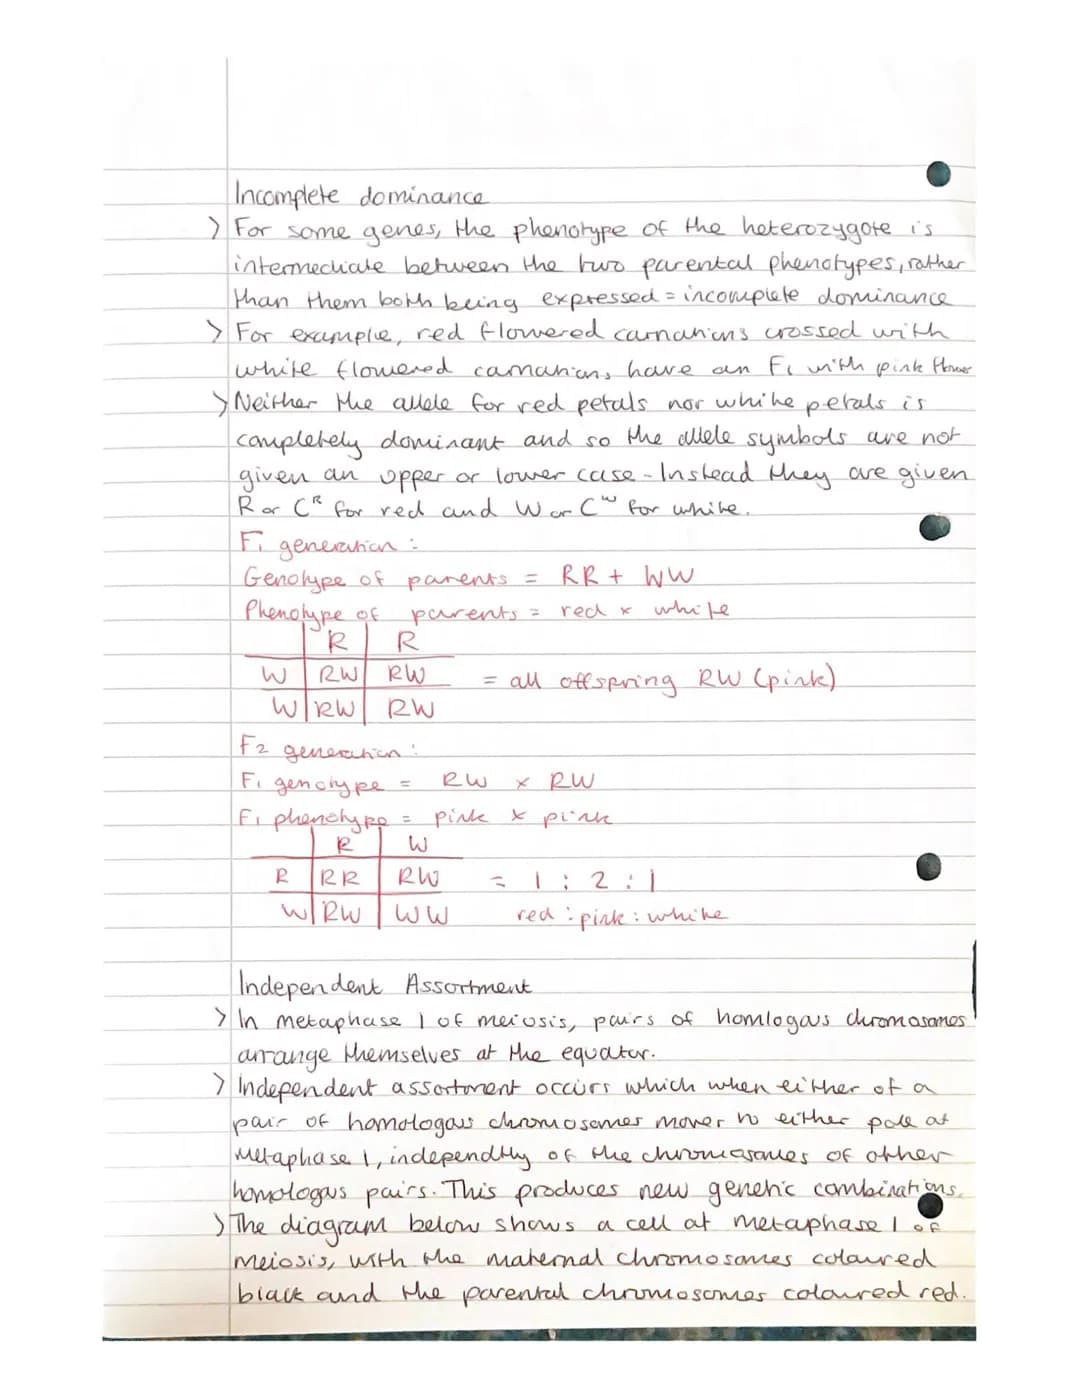 Incomplete dominance
> For some genes, the phenotype of the heterozygote is
intermediate between the two parental phenotypes, rather
than them both being expressed = incomplete dominance
> For example, red flowered carnations crossed with
white flowered carnations, have an F1 with pink flower
> Neither the allele for red petals nor white petals is
completely dominant and so the allele symbols are not
given an upper or lower case - Instead they are given
R or Cᴿ for red and W or Cʷ for white.
F1 generation :
Genotype of parents = RR + WW
Phenotype of parents = red x white
R R
W RW RW = all offspring RW (pink)
W RW RW
F2 generation :
F1 genotype = RW x RW
F1 phenotype = pink x pink
R W
R RR RW = 1 : 2 : 1
W RW WW red : pink : white
Independent Assortment
> In metaphase 1 of meiosis, pairs of homlogous chromosomes
arrange themselves at the equator.
> Independent assortment occurs which when either of a
pair of homologous chromosomes moves to either pole at
Metaphase 1, independtly of the chromosomes of other
homologous pairs. This produces new genetic combinations.
> The diagram below shows a cell at metaphase 1 of
meiosis, with the maternal chromosomes coloured
black and the parental chromosomes coloured red.